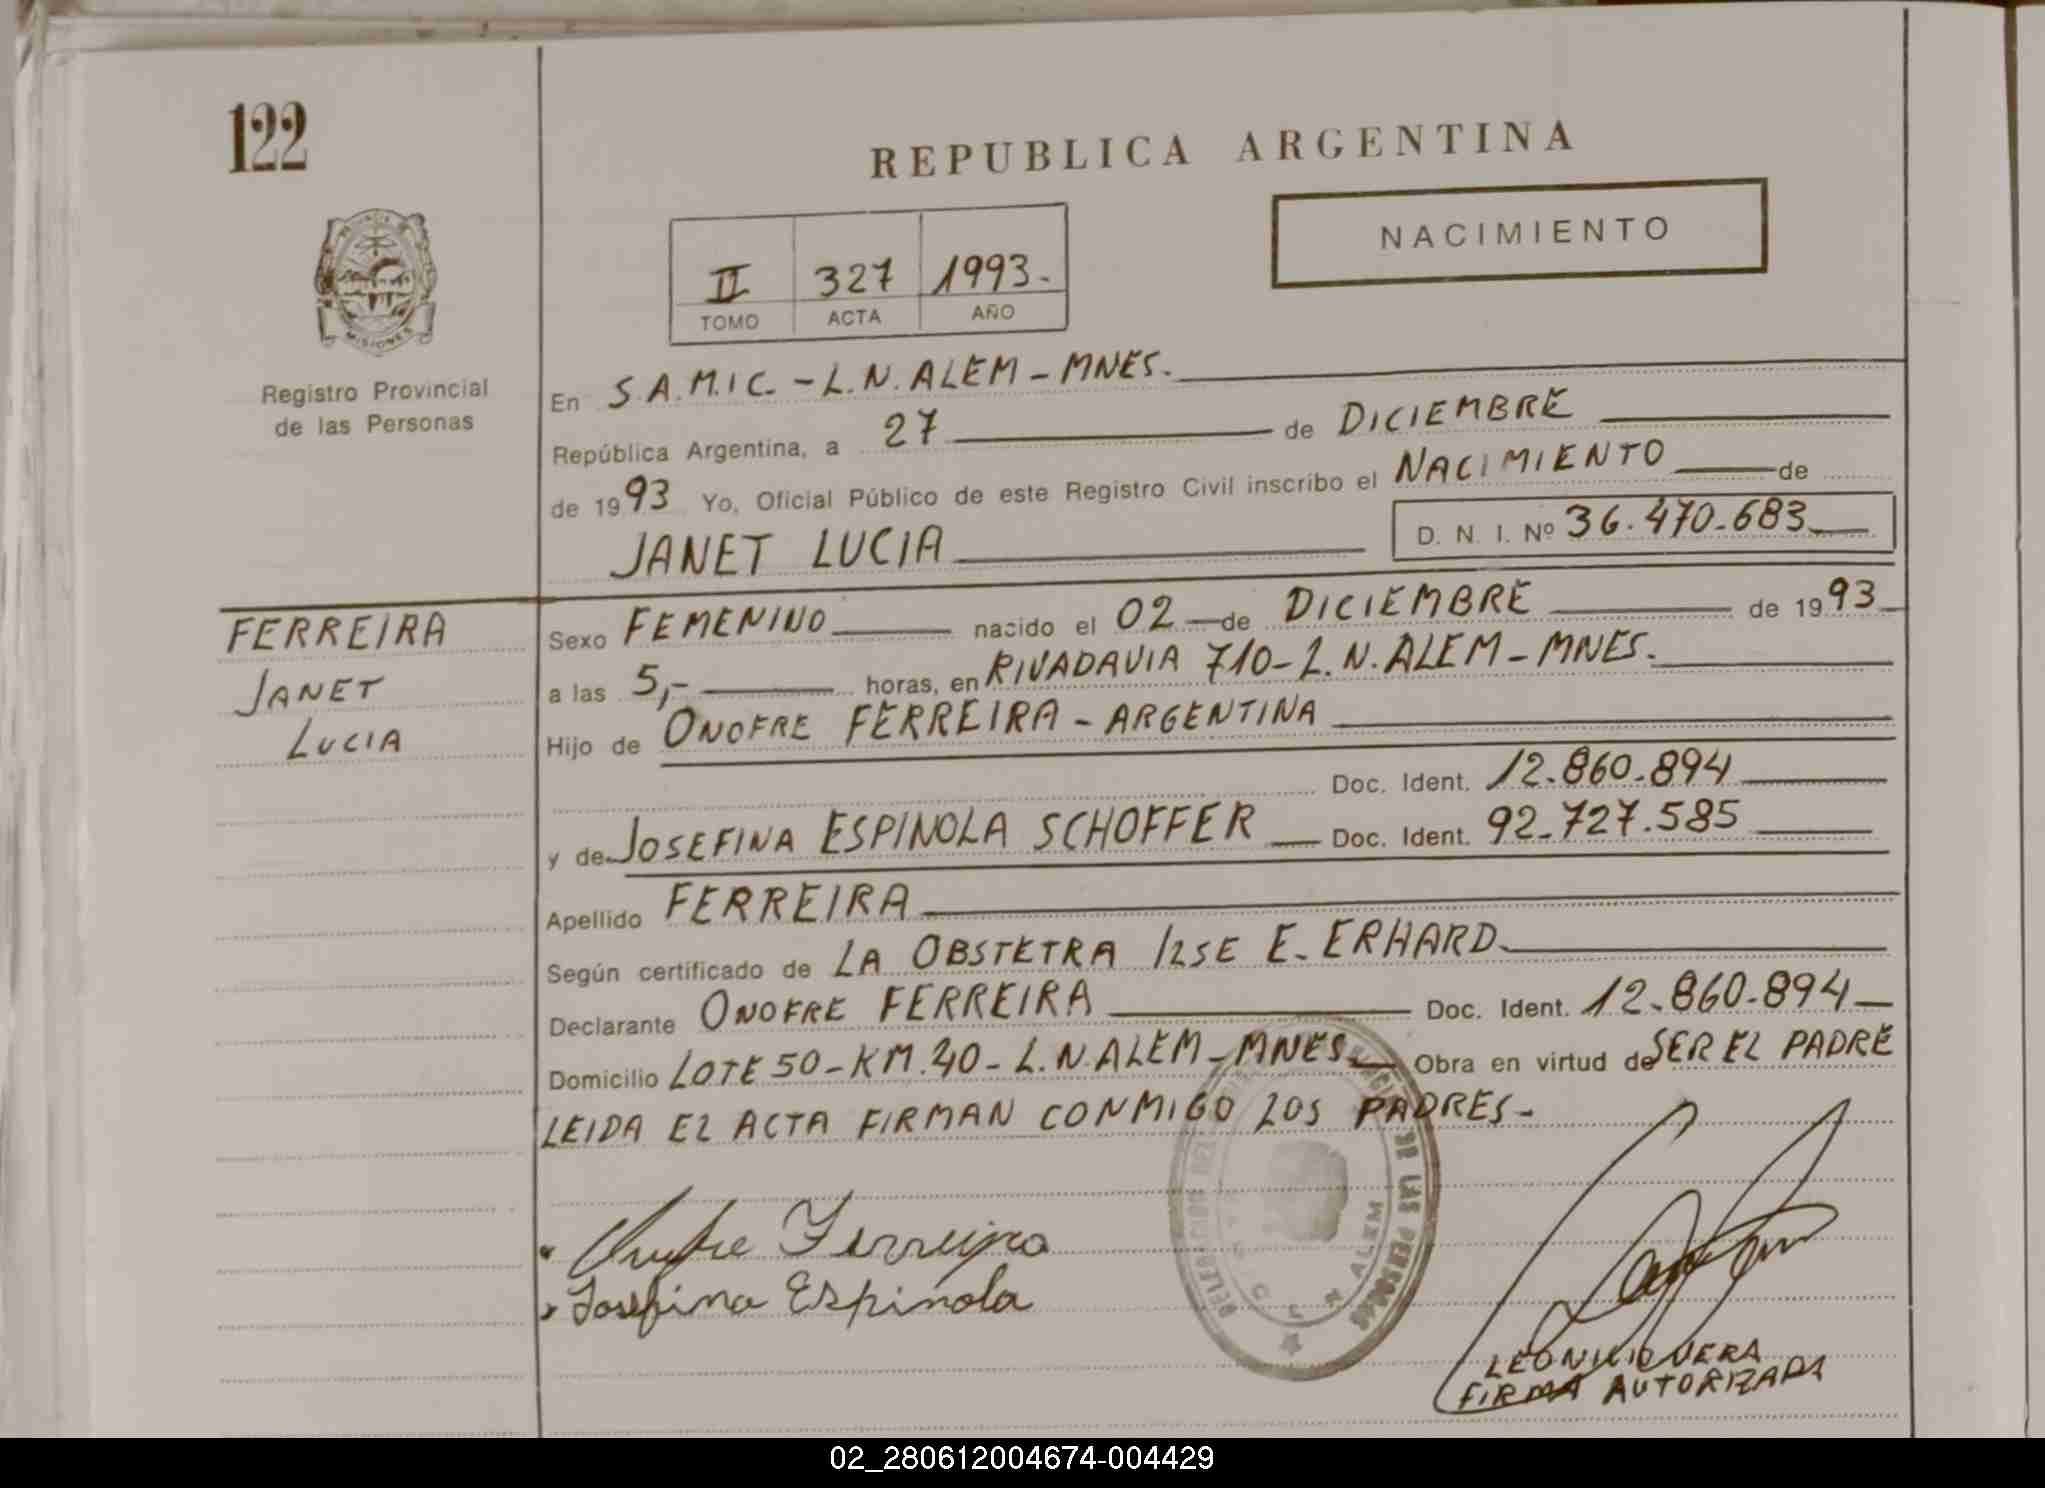 122
REPUBLICA ARGENTINA
NACIMIENTO
II 327 1993.-
TOMO ACTA AÑO
PROVINCIA DE MISIONES
Registro Provincial
de las Personas
En S.A.M.I.C. - L.N. ALEM - MNES.
República Argentina, a 27 de DICIEMBRE
de 1993 Yo, Oficial Público de este Registro Civil inscribo el NACIMIENTO de
JANET LUCIA D. N. I. Nº 36.470.683
FERREIRA
JANET
LUCIA
Sexo FEMENINO nacido el 02 de DICIEMBRE de 1993
a las 5,- horas, en RIVADAVIA 710 - L.N. ALEM - MNES.
Hijo de ONOFRE FERREIRA - ARGENTINA
Doc. Ident. 12.860.894
y de JOSEFINA ESPINOLA SCHOFFER Doc. Ident. 92.727.585
Apellido FERREIRA
Según certificado de LA OBSTETRA ILSE E. ERHARD
Declarante ONOFRE FERREIRA Doc. Ident. 12.860.894
Domicilio LOTE 50 - KM. 40 - L.N. ALEM - MNES Obra en virtud de SER EL PADRE
LEIDA EL ACTA FIRMAN CONMIGO LOS PADRES -
Onofre Ferreira
Josefina Espinola
DE LAS PERSONAS
ALEM
LEONILIO VERA
FIRMA AUTORIZADA
02_280612004674-004429